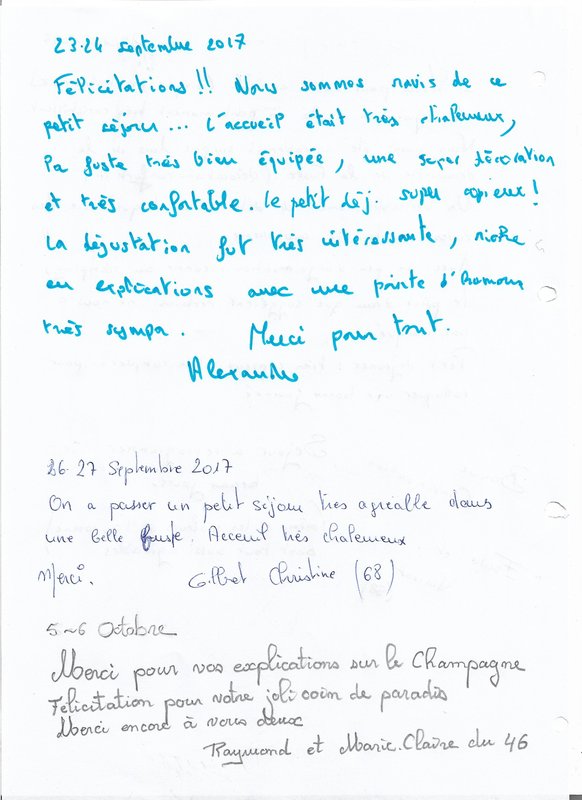 23.24 septembre 2017
Félicitations !! Nous sommes ravis de ce
petit séjour... L'accueil était très chaleureux,
la fuste très bien équipée, une super décoration
et très confortable. Le petit déj. super copieux !
La dégustation fut très intéressante, riche
en explications avec une pointe d'humour
très sympa. Merci pour tout.
Alexandre
26.27 Septembre 2017
On a passer un petit séjour très agréable dans
une belle fuste. Acceuil très chaleureux
Merci. Gilbert Christine (68)
5~6 Octobre
Merci pour vos explications sur le Champagne
Félicitation pour votre joli coin de paradis
Merci encore à vous deux
Raymond et Marie.Claire du 46